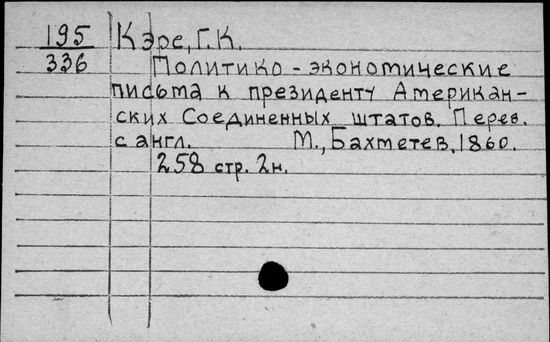 195 Кэре, Г. К.
336 Политико - экономические
письма к президенту Американ-
ских Соединенных штатов. Перев.
с англ. М., Бахметев, 1860.
258 стр. 2н.